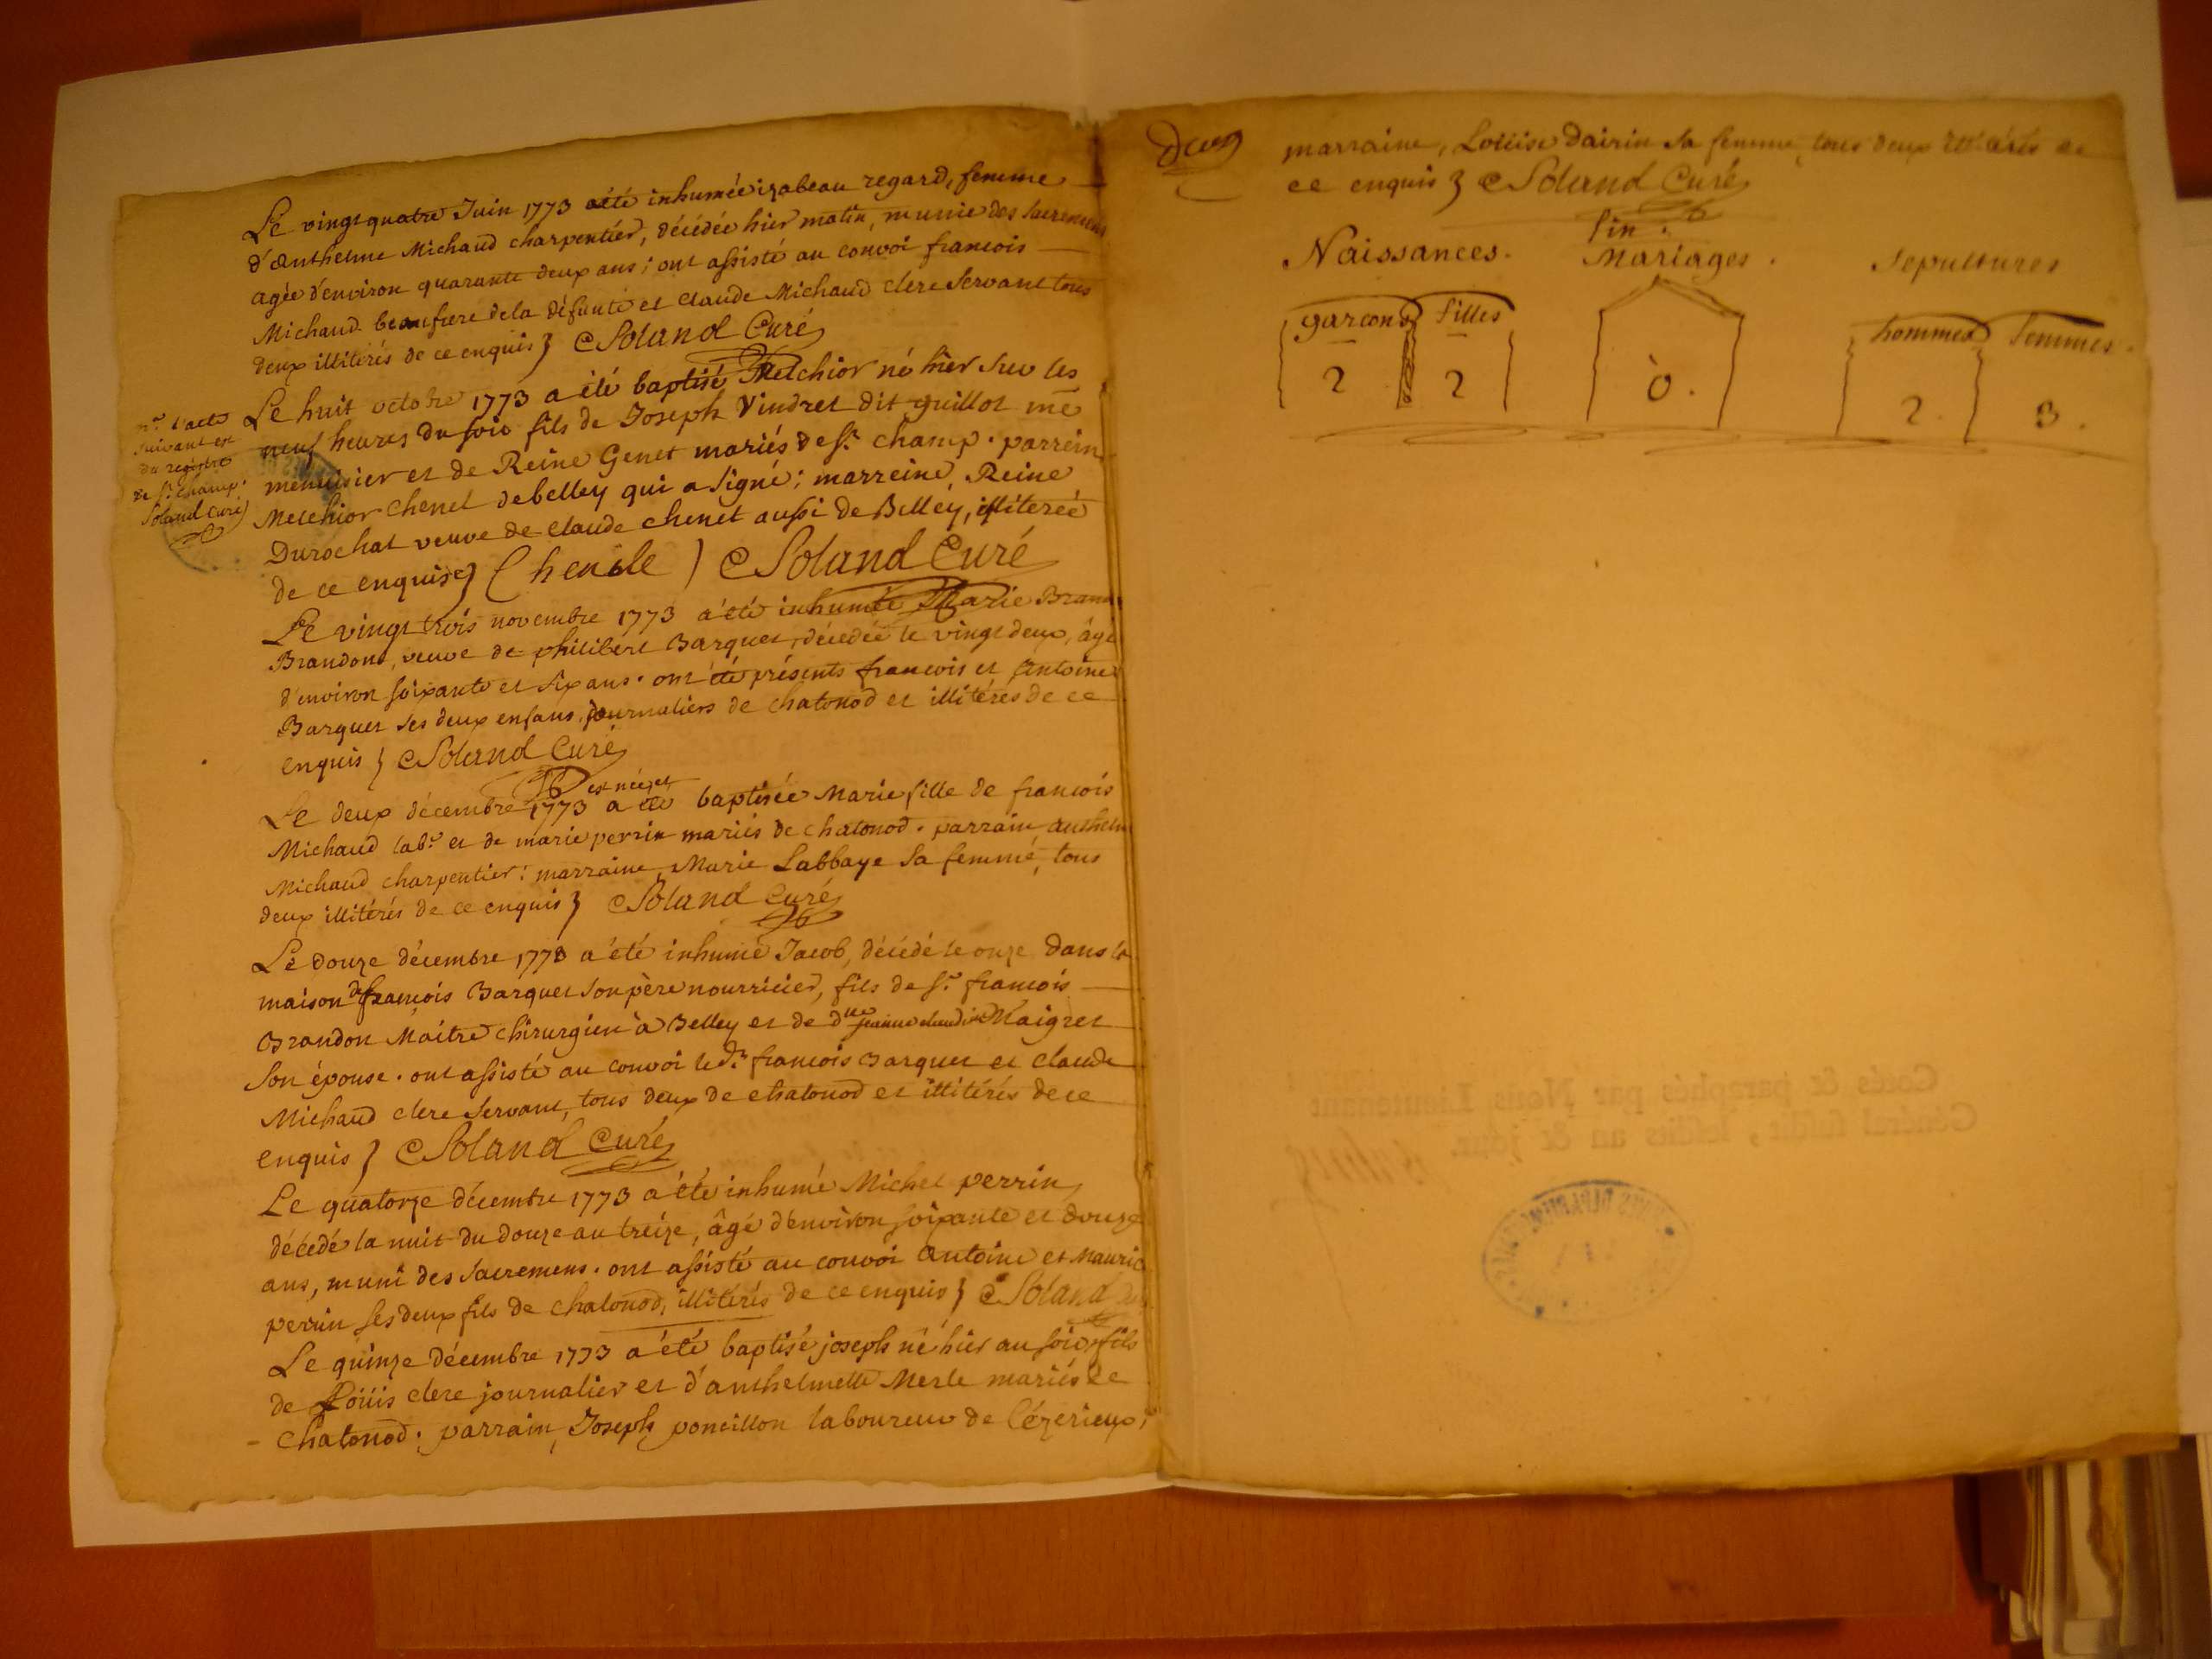 Le vingt quatre Juin 1773 a été inhumée izabeau regard, femme
d'Anthelme Michaud charpentier, décédée hier matin, munie des sacremens
agée d'environ quarante deux ans; ont assisté au convoi francois
Michaud beaufrere de la défunte et claude Michaud clerc servant tous
deux illitérés de ce enquis } Soland Curé
n.ª l'acte
suivant est
du registre
de S.t champ.
Soland curé
Le huit octobre 1773 a été baptisé Melchior né hier sur les
neuf heures du soir fils de Joseph Vindret dit guillot me
menuisier et de Reine Genet mariés de S.t champ. parrein,
Melchior chenet de belley qui a signé; marreine, Reine
Durochat veuve de claude chenet aussi de Belley, illiterée
de ce enquise } Soland Curé
Le vingt trois novembre 1773 a été inhumée Marie
Brandon, veuve de philibert Barquet, décédée le vingt deux, âgé
d'environ soixante et six ans. ont été présents francois et Antoine
Barquet ses deux enfans, journaliers de chatonod et illitérés de ce
enquis } Soland Curé
est née, et
Le deux décembre 1773 a été baptisée Marie fille de francois
Michaud lab.r et de marie perrin mariés de chatonod. parrain, anthelm
Michaud charpentier: marraine, Marie Labbaye sa femme, tous
deux illitérés de ce enquis } Soland Curé
Le douze décembre 1773 a été inhumé Jacob, décédé le onze dans la
maison de françois Barquet son père nourricier, fils de S.r francois
Brandon Maitre chirurgien à Belley et de dlle jeanne claudine Maigret
son épouse. ont assisté au convoi le d.t francois Barquet et claude
Michaud clerc servant, tous deux de chatonod et illitérés de ce
enquis } Soland Curé
Le quatorze décembre 1773 a été inhumé Michel perrin,
décédé la nuit du douze au treize, âgé d'environ soixante et douze
ans, muni des sacremens. ont assisté au convoi Antoine et Mauric
perrin ses deux fils de chatonod, illitérés de ce enquis } Soland
Le quinze décembre 1773 a été baptisé joseph né hier au soir, fils
de Loüis clerc journalier et d'anthelmette Merle mariés de
chatonod. parrain, Joseph poncillon laboureur de Cézerieux;
marraine, Loüise Dairin sa femme, tous deux illitérés de
ce enquis } Soland Curé
fin.
Naissances. Mariages. Sepultures
garcons filles hommes femmes.
2 2 0. 2. 3.
Cotés & paraphés par Nous Lieutenant
Général susdit, lesdits an & jour.